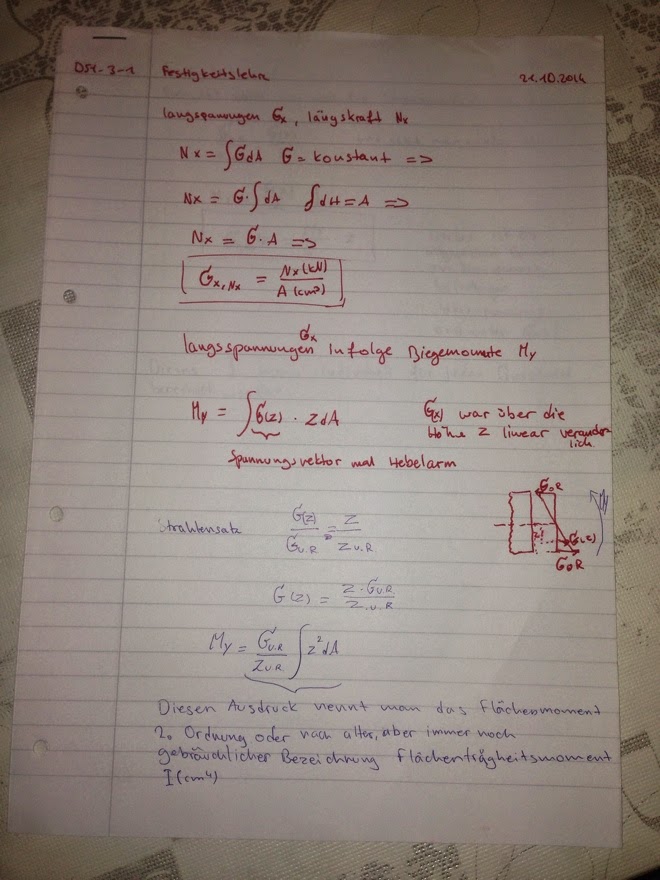 DS1-3-1 Festigkeitslehre 21.10.2014
längsspannungen σx, längskraft Nx
Nx = ∫σdA σ = konstant =>
Nx = σ·∫dA ∫dA = A =>
Nx = σ·A =>
σx,Nx = Nx(kN) / A(cm²)
längsspannungen σx infolge Biegemomente My
My = ∫σ(z) · z dA
σ(x) war über die
Höhe z linear veränder-
lich
Spannungsvektor mal Hebelarm
σo.R
σ(z)
σuR
Strahlensatz σ(z) / σu.R = z / zu.R.
σ(z) = z·σu.R / zu.R
My = σu.R / zu.R ∫z²dA
Diesen Ausdruck nennt man das Flächenmoment
2. Ordnung oder nach alter, aber immer noch
gebräuchlicher Bezeichnung Flächenträgheitsmoment
I(cm⁴)